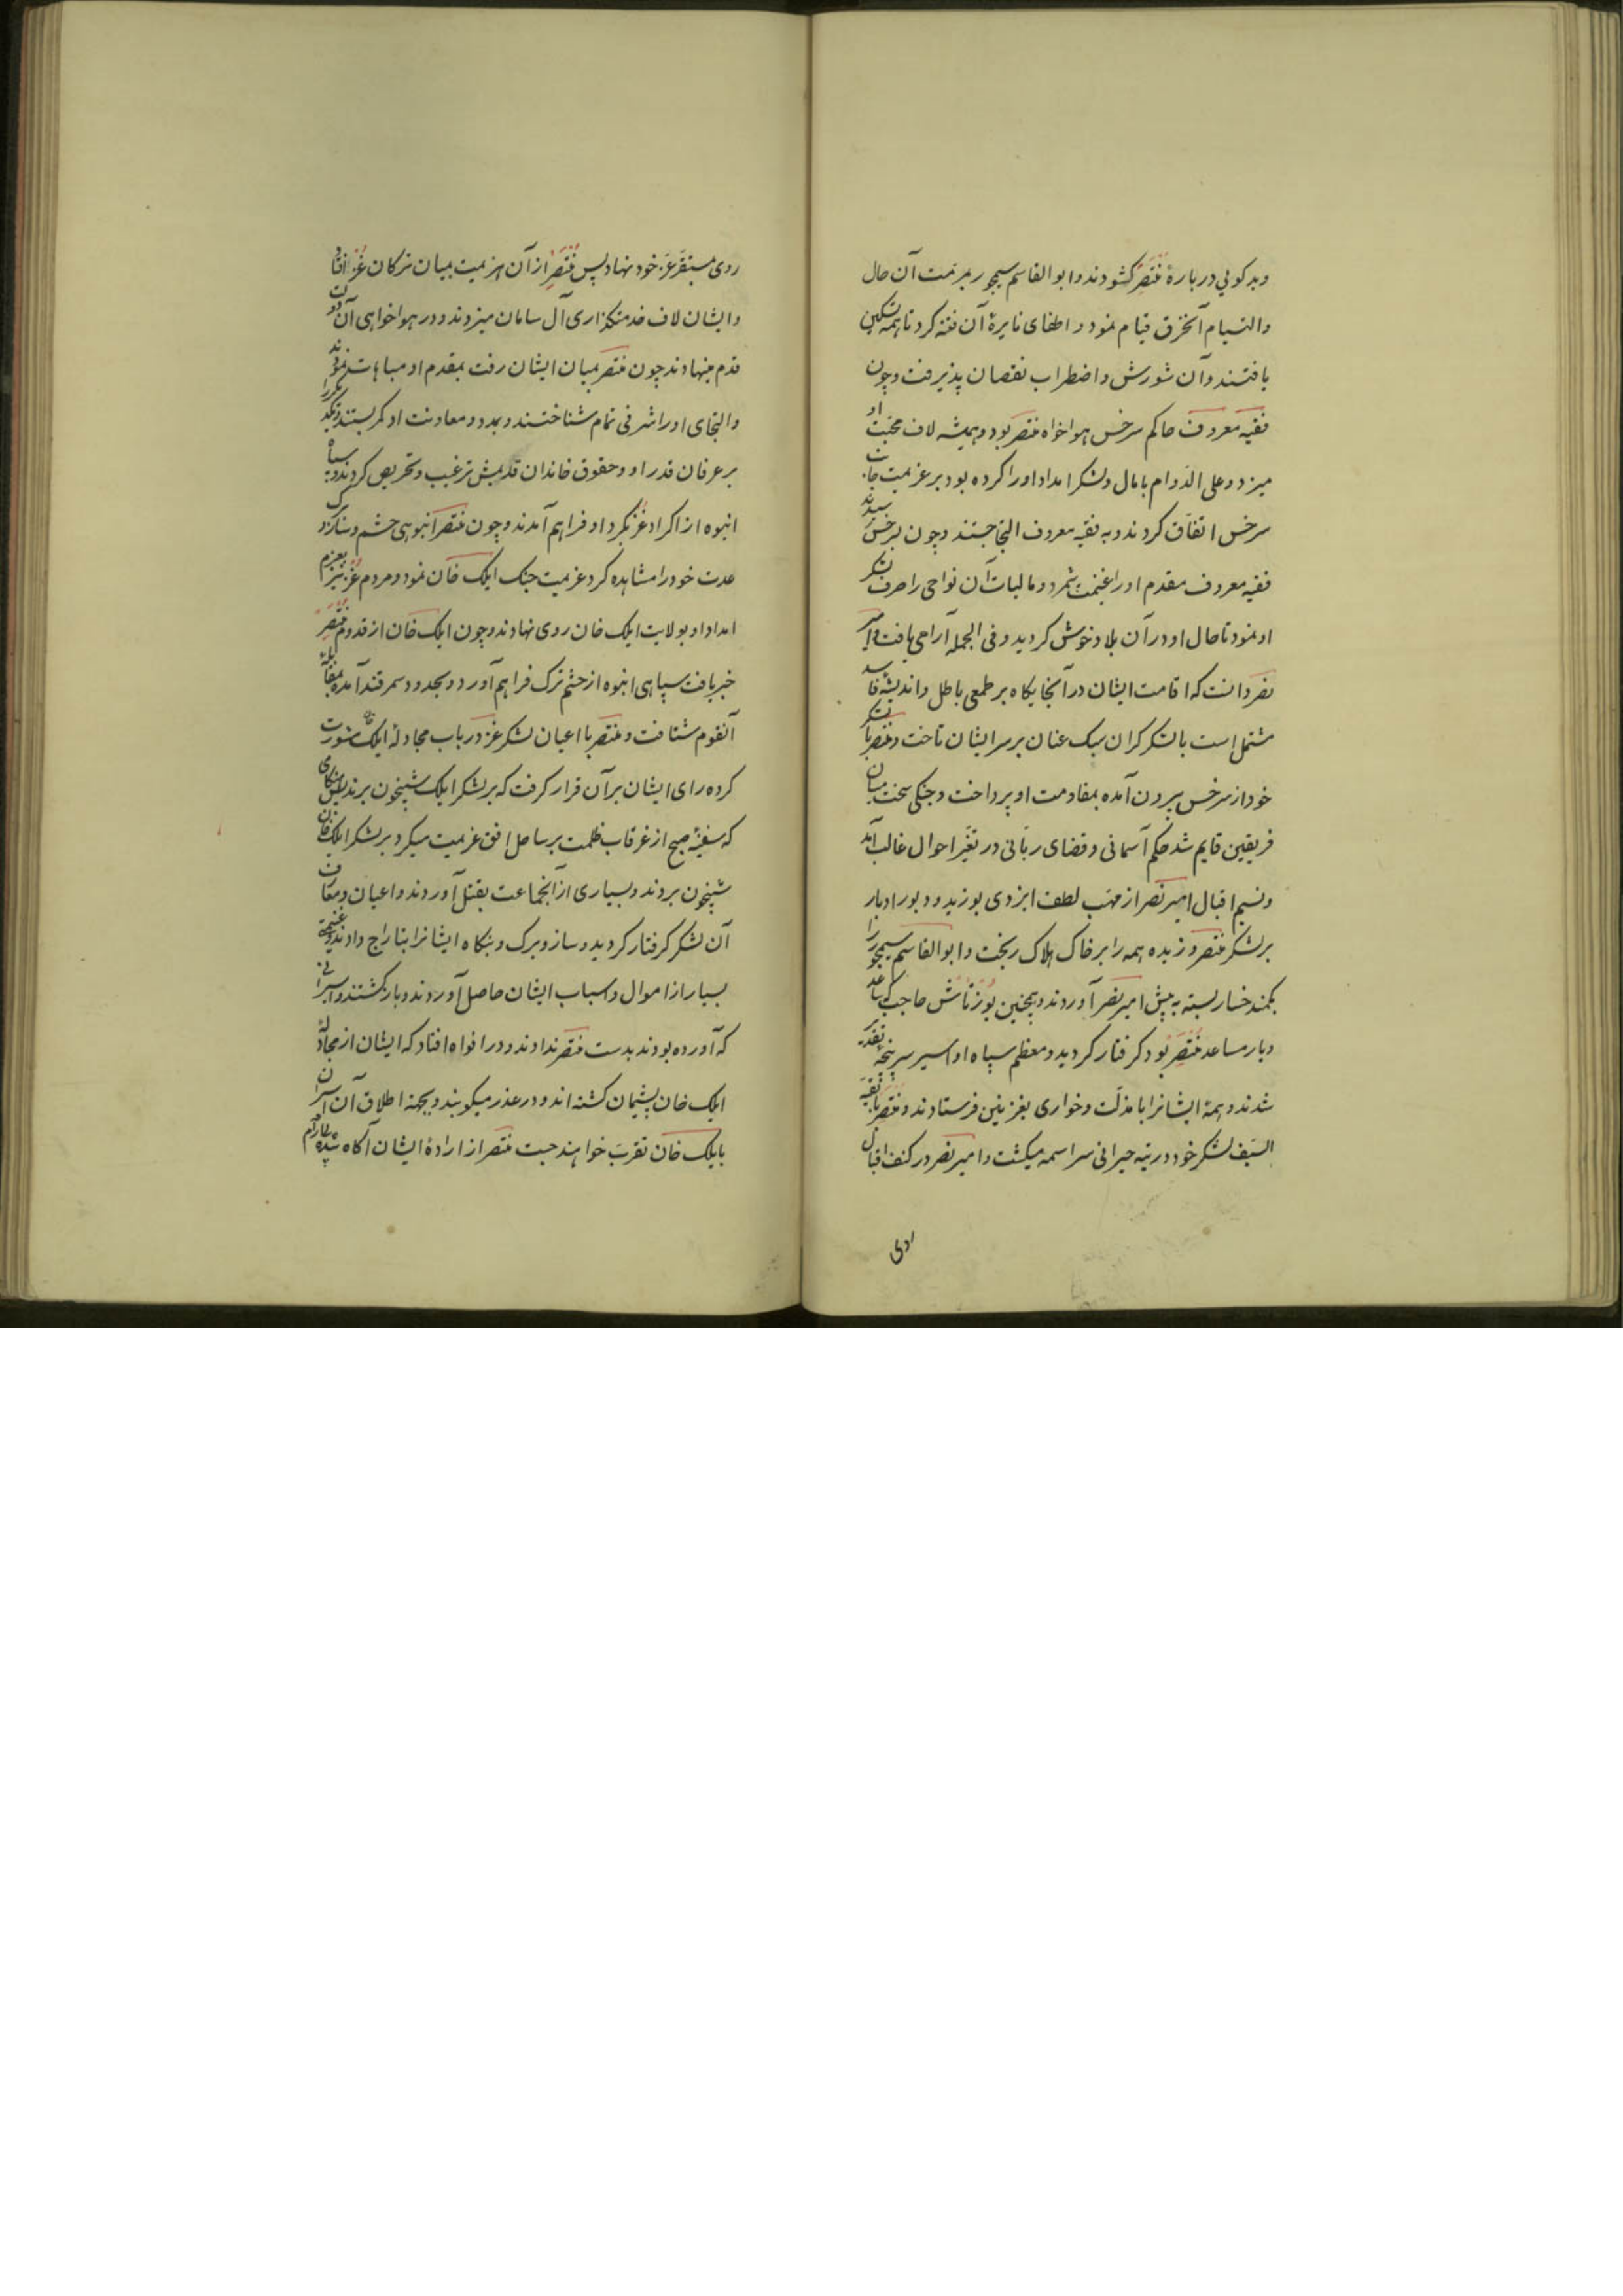 وبد کویی در بارهٔ منتصر کشودند و ابوالقاسم سیمجور بمرمت آن حال
والتیام آنخرق قیام نمود و اطفای نایرهٔ آن فتنه کرد تا همه تسکین
یافتند و آن شورش و اضطراب نقصان پذیرفت و چون
فقیه معروف حاکم سرخس هواخواه منتصر بود و همیشه لاف محبت او
میزد و علی الدوام بامال ولشکر امداد او را کرده بود بر عزیمت جانب
سرخس اتفاق کردند و به فقیه معروف التجا جستند و چون بسرخس رسیدند
فقیه معروف مقدم او را غنیمت شمرد و مالیات آن نواحی را صرف لشکر
او نمود تا حال او در آن بلاد خوش کردید و فی الجمله آرامی یافت و امیر
نصر دانست که اقامت ایشان در آنجایکاه بر طمعی باطل و اندیشهٔ فاسد
مشتمل است با لشکر کران سبک عنان بر سر ایشان تاخت و منتصر با لشکر
خود از سرخس بیرون آمده بمقاومت او پرداخت و جنکی سخت میان
فریقین قایم شد حکم آسمانی و قضای ربانی در تغیر احوال غالب آمد
ونسیم اقبال امیر نصر از مهب لطف ایزدی بوزید و دبور ادبار
بر لشکر منتصر وزیده همه را بر خاک هلاک ریخت و ابوالقاسم سیمجور را
بکمند خسار بسته به پیش امیر نصر آوردند و همچنین بوزتاش حاجب که ساعد
ویار مساعد منتصر بود کرفتار کردید و معظم سپاه او اسیر سرپنجهٔ تقدیر
شدند و همهٔ ایشانرا با مذلت و خواری بغزنین فرستادند و منتصر با بقیه
السیف لشکر خود در تیه حیرانی سراسمه میکشت و امیر نصر در کنف اقبال
روی
روی مستقر عز خود نهاد پس منتصر از آن هزیمت بمیان ترکان غز افتاد
وایشان لاف خدمتکزاری آل سامان میزدند و در هواخواهی آن دولت
قدم مینهادند چون منتصر بمیان ایشان رفت بمقدم او مباهات نمودند
والتجای او را شرفی تمام شناختند و بمدد و معاونت او کمر بستند و یکدیکر را
بر عرفان قدر او و حقوق خاندان قدیمش ترغیب و تحریص کردند و سپاه
انبوه از اکراد غز بکرد او فراهم آمدند و چون منتصر انبوهی حشم و
عدت خود را مشاهده کرد عزیمت جنک ایلک خان نمود و مردم غز نیز بعزم
امداد او بولایت ایلک خان روی نهادند و چون ایلک خان از قدوم منتصر
خبر یافت سپاهی انبوه از حشم ترک فراهم آورد و بحدود سمرقند آمده بمقابلهٔ
آنقوم شتافت و منتصر با اعیان لشکر غز در باب مجادلهٔ ایلک مشورت
کرده رای ایشان بر آن قرار کرفت که بر لشکر ایلک شبیخون برند پس هنکامی
که سفینهٔ صبح از غرقاب ظلمت بر ساحل افق عزیمت میکرد بر لشکر ایلک خان
شبیخون بردند و بسیاری از آنجماعت بقتل آوردند و اعیان و معارف
آن لشکر کرفتار کردید و ساز و برک و بنکاه ایشانرا بتاراج دادند و غنیمة
بسیار از اموال و اسباب ایشان حاصل آوردند و باز کشتند و اسیرانی
که آورده بودند بدست منتصر ندادند و در افواه افتاد که ایشان از مجادلهٔ
ایلک خان پشیمان کشته اند و در عذر میکوبند و بجهة اطلاق آن اسیران
بایلک خان تقرب خواهند جست منتصر از ارادهٔ ایشان آکاه شده